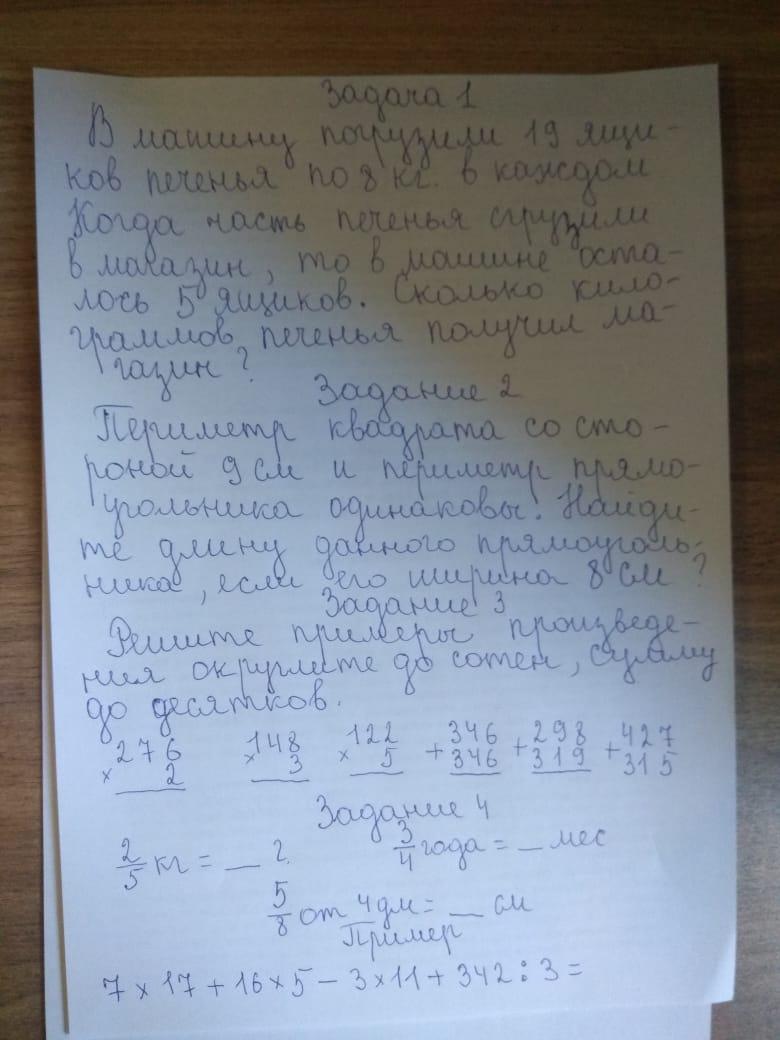 Задача 1
В машину погрузили 19 ящи-
ков печенья по 8 кг. в каждом
Когда часть печенья сгрузили
в магазин, то в машине оста-
лось 5 ящиков. Сколько кило-
граммов печенья получил ма-
газин?
Задание 2
Периметр квадрата со сто-
роной 9 см и периметр прямо-
угольника одинаковы. Найди-
те длину данного прямоуголь-
ника, если его ширина 8 см?
Задание 3
Решите примеры произведе-
ния округлите до сотен, сумму
до десятков.
276 148 122 346 298 427
× 2 × 3 × 5 + 346 + 319 + 315
Задание 4
2/5 кг = __ г. 3/4 года = _ мес
5/8 от 4 дм = __ см
Пример
7 × 17 + 16 × 5 - 3 × 11 + 342 : 3 =